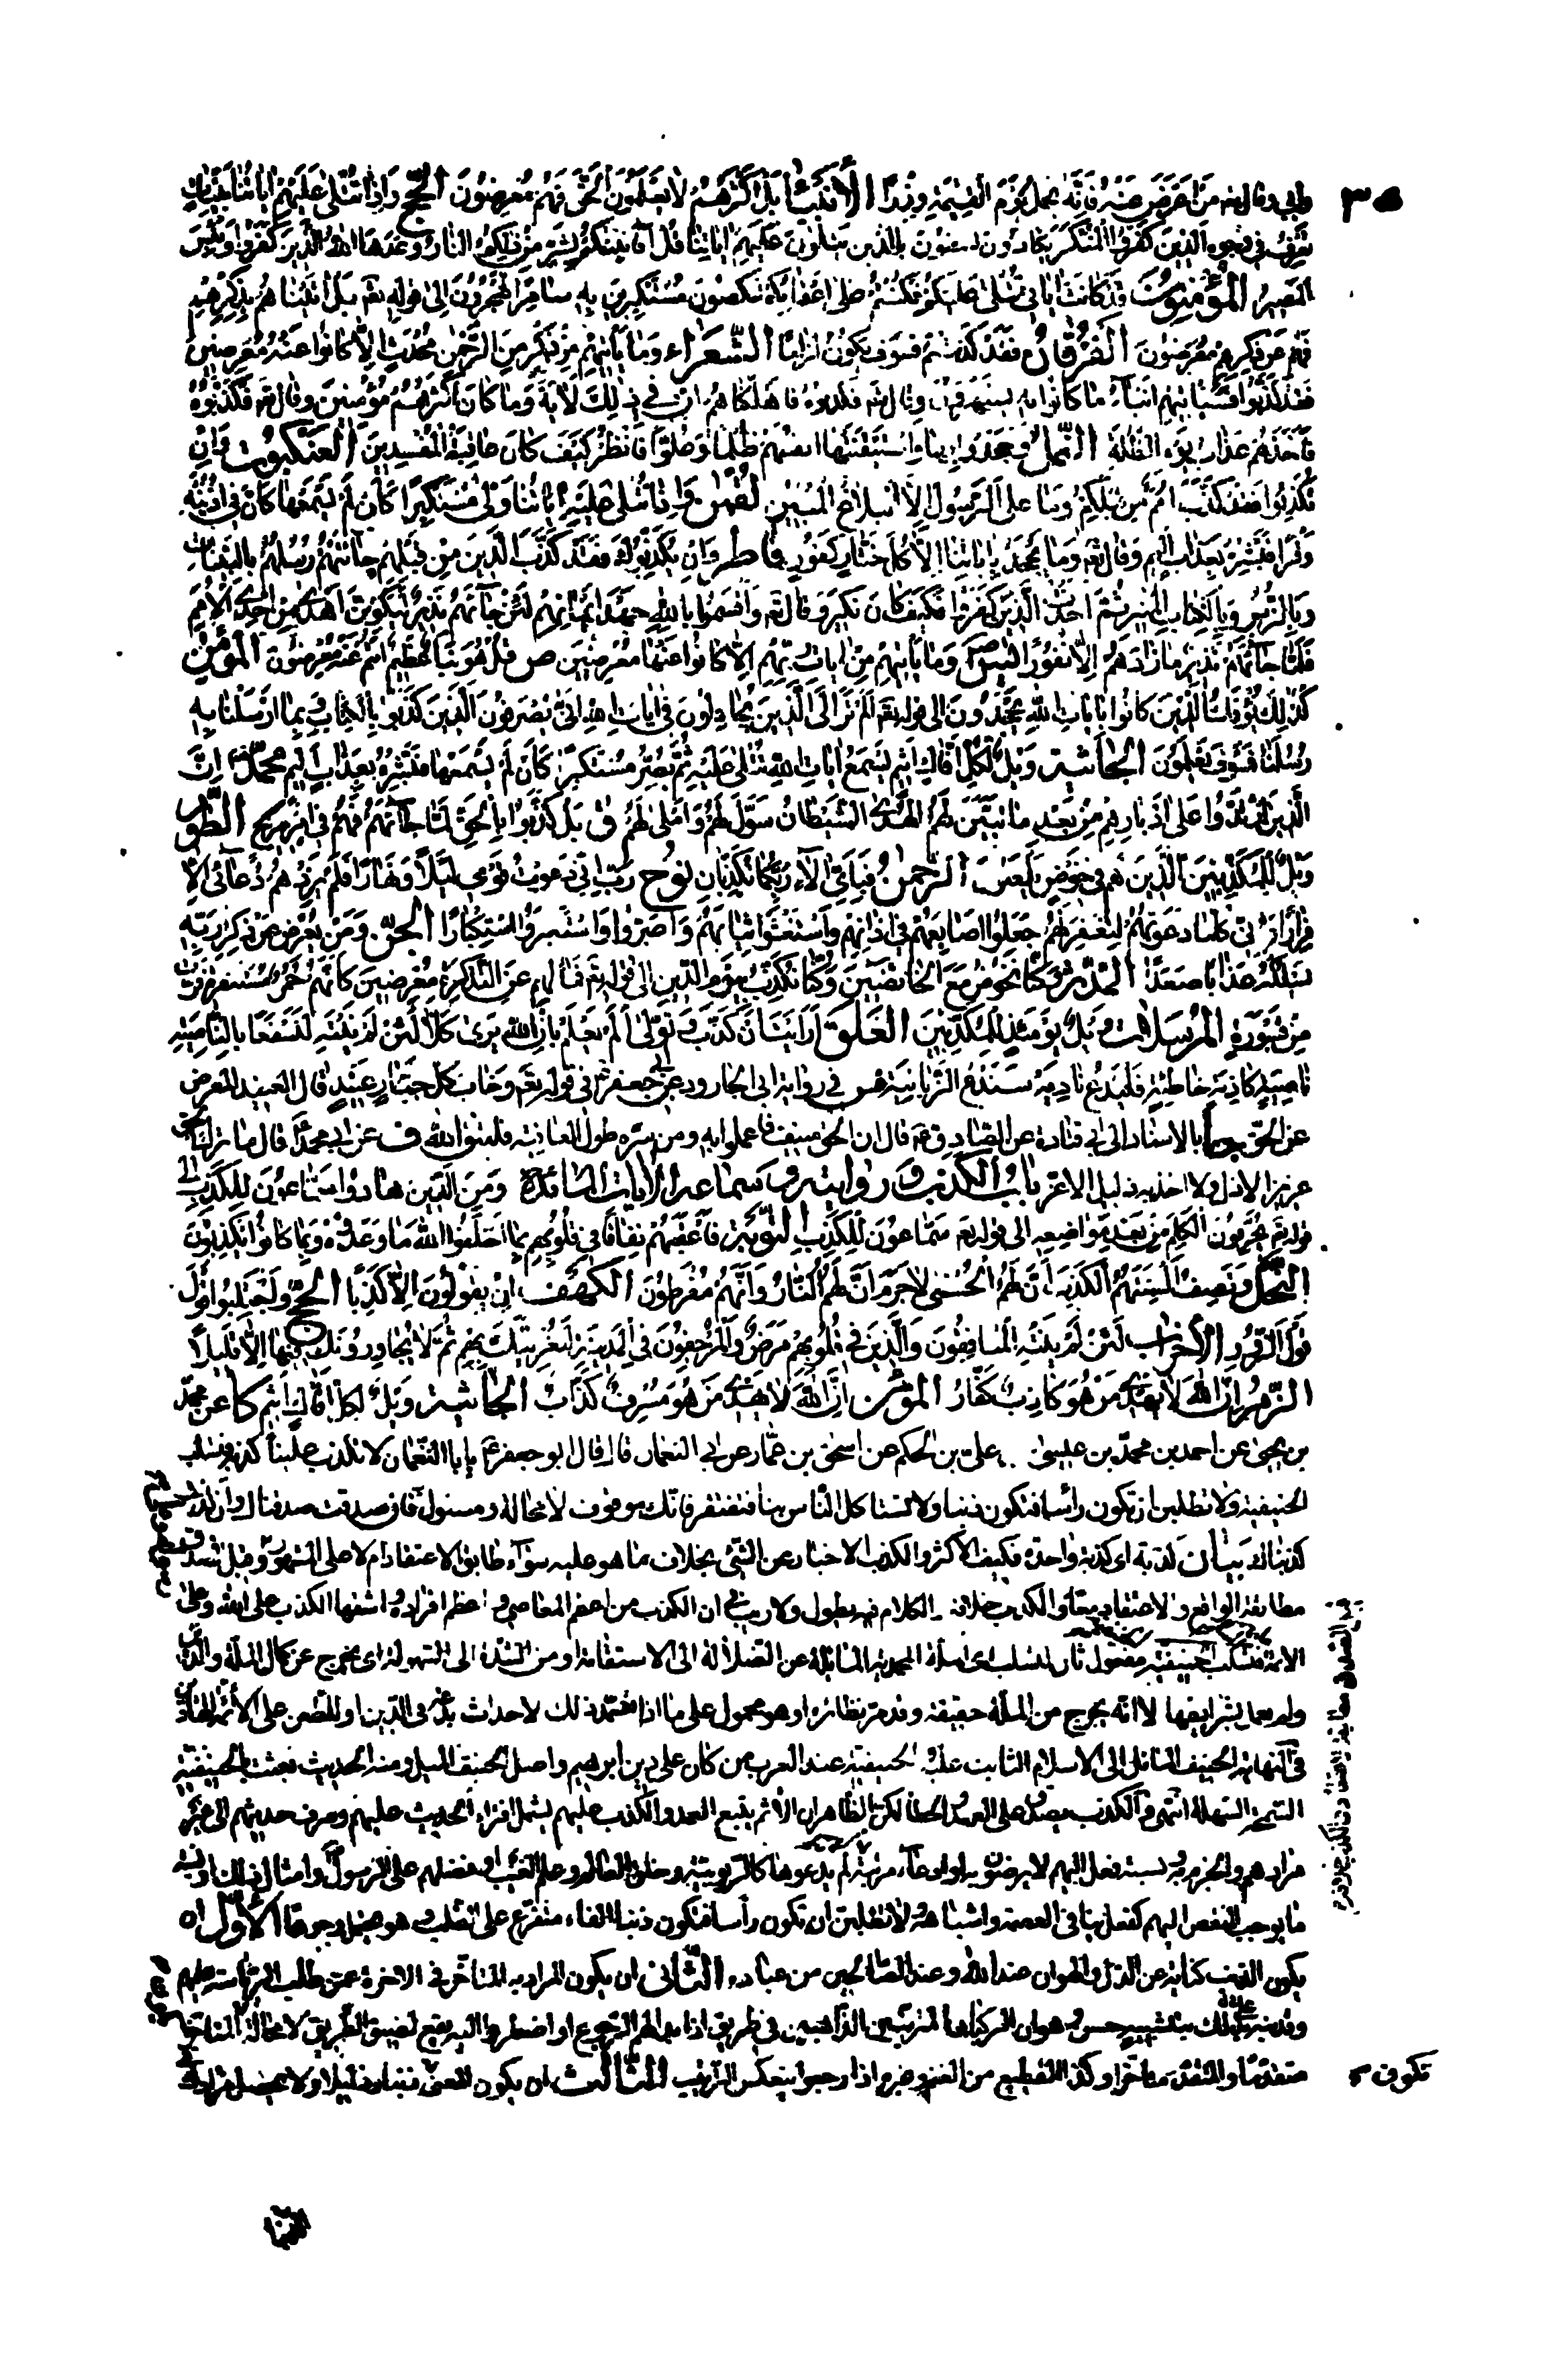 وابى وقال تعم مَنْ اَعْرَضَ عَنْهُ فَاِنَّهُ يَحْمِلُ يَوْمَ الْقِيٰمَةِ وِزْرًا الأنبيَاء بَلْ اَكْثَرُهُمْ لَا يَعْلَمُونَ الْحَقَّ فَهُمْ مُعْرِضُونَ الحج وَاِذَا تُتْلٰى عَلَيْهِمْ اٰيَاتُنَا بَيِّنَاتٍ
تَعْرِفُ فِي وُجُوهِ الَّذِينَ كَفَرُوا الْمُنْكَرَ يَكَادُونَ يَسْطُونَ بِالَّذِينَ يَتْلُونَ عَلَيْهِمْ اٰيَاتِنَا قُلْ اَفَاُنَبِّئُكُمْ بِشَرٍّ مِنْ ذٰلِكُمُ النَّارُ وَعَدَهَا اللهُ الَّذِينَ كَفَرُوا وَبِئْسَ
الْمَصِيرُ المؤمنون قَدْ كَانَتْ اٰيَاتِي تُتْلٰى عَلَيْكُمْ فَكُنْتُمْ عَلٰى اَعْقَابِكُمْ تَنْكِصُونَ مُسْتَكْبِرِينَ بِهِ سَامِرًا تَهْجُرُونَ اِلٰى قوله تعم بَلْ اَتَيْنَاهُمْ بِذِكْرِهِمْ
فَهُمْ عَنْ ذِكْرِهِمْ مُعْرِضُونَ الفرقان فَقَدْ كَذَّبْتُمْ فَسَوْفَ يَكُونُ لِزَامًا الشّعراء وَمَا يَأْتِيهِمْ مِنْ ذِكْرٍ مِنَ الرَّحْمٰنِ مُحْدَثٍ اِلَّا كَانُوا عَنْهُ مُعْرِضِينَ
فَقَدْ كَذَّبُوا فَسَيَأْتِيهِمْ اَنْبَاءُ مَا كَانُوا بِهِ يَسْتَهْزِءُونَ وقال تعم فَكَذَّبُوهُ فَاَهْلَكْنَاهُمْ اِنَّ فِي ذٰلِكَ لَاٰيَةً وَمَا كَانَ اَكْثَرُهُمْ مُؤْمِنِينَ وقال تعم فَكَذَّبُوهُ
فَاَخَذَهُمْ عَذَابُ يَوْمِ الظُّلَّةِ النّمل وَجَحَدُوا بِهَا وَاسْتَيْقَنَتْهَا اَنْفُسُهُمْ ظُلْمًا وَعُلُوًّا فَانْظُرْ كَيْفَ كَانَ عَاقِبَةُ الْمُفْسِدِينَ العنكبوت وَاِنْ
تُكَذِّبُوا فَقَدْ كَذَّبَ اُمَمٌ مِنْ قَبْلِكُمْ وَمَا عَلَى الرَّسُولِ اِلَّا الْبَلَاغُ الْمُبِينُ لقمٰن وَاِذَا تُتْلٰى عَلَيْهِ اٰيَاتُنَا وَلّٰى مُسْتَكْبِرًا كَاَنْ لَمْ يَسْمَعْهَا كَاَنَّ فِي اُذُنَيْهِ
وَقْرًا فَبَشِّرْهُ بِعَذَابٍ اَلِيمٍ وقال تعم وَمَا يَجْحَدُ بِاٰيَاتِنَا اِلَّا كُلُّ خَتَّارٍ كَفُورٍ فاطر وَاِنْ يُكَذِّبُوكَ فَقَدْ كَذَّبَ الَّذِينَ مِنْ قَبْلِهِمْ جَاءَتْهُمْ رُسُلُهُمْ بِالْبَيِّنَاتِ
وَبِالزُّبُرِ وَبِالْكِتَابِ الْمُنِيرِ ثُمَّ اَخَذْتُ الَّذِينَ كَفَرُوا فَكَيْفَ كَانَ نَكِيرِ وقال تعم وَاَقْسَمُوا بِاللهِ جَهْدَ اَيْمَانِهِمْ لَئِنْ جَاءَهُمْ نَذِيرٌ لَيَكُونُنَّ اَهْدٰى مِنْ اِحْدَى الْاُمَمِ
فَلَمَّا جَاءَهُمْ نَذِيرٌ مَا زَادَهُمْ اِلَّا نُفُورًا يس وَمَا تَأْتِيهِمْ مِنْ اٰيَاتِ رَبِّهِمْ اِلَّا كَانُوا عَنْهَا مُعْرِضِينَ ص قُلْ هُوَ نَبَأٌ عَظِيمٌ اَنْتُمْ عَنْهُ مُعْرِضُونَ المؤمن
كَذٰلِكَ يُؤْفَكُ الَّذِينَ كَانُوا بِاٰيَاتِ اللهِ يَجْحَدُونَ الى قوله تعم اَلَمْ تَرَ اِلَى الَّذِينَ يُجَادِلُونَ فِي اٰيَاتِ اللهِ اَنّٰى يُصْرَفُونَ الَّذِينَ كَذَّبُوا بِالْكِتَابِ وَبِمَا اَرْسَلْنَا بِهِ
رُسُلَنَا فَسَوْفَ يَعْلَمُونَ الجاثية وَيْلٌ لِكُلِّ اَفَّاكٍ اَثِيمٍ يَسْمَعُ اٰيَاتِ اللهِ تُتْلٰى عَلَيْهِ ثُمَّ يُصِرُّ مُسْتَكْبِرًا كَاَنْ لَمْ يَسْمَعْهَا فَبَشِّرْهُ بِعَذَابٍ اَلِيمٍ محمّد اِنَّ
الَّذِينَ ارْتَدُّوا عَلٰى اَدْبَارِهِمْ مِنْ بَعْدِ مَا تَبَيَّنَ لَهُمُ الْهُدَى الشَّيْطَانُ سَوَّلَ لَهُمْ وَاَمْلٰى لَهُمْ ق بَلْ كَذَّبُوا بِالْحَقِّ لَمَّا جَاءَهُمْ فَهُمْ فِي اَمْرٍ مَرِيجٍ الطّور
وَيْلٌ لِلْمُكَذِّبِينَ الَّذِينَ هُمْ فِي خَوْضٍ يَلْعَبُونَ الرّحمٰن فَبِاَيِّ اٰلَاءِ رَبِّكُمَا تُكَذِّبَانِ نوح رَبِّ اِنِّي دَعَوْتُ قَوْمِي لَيْلًا وَنَهَارًا فَلَمْ يَزِدْهُمْ دُعَائِي اِلَّا
فِرَارًا وَاِنِّي كُلَّمَا دَعَوْتُهُمْ لِتَغْفِرَ لَهُمْ جَعَلُوا اَصَابِعَهُمْ فِي اٰذَانِهِمْ وَاسْتَغْشَوْا ثِيَابَهُمْ وَاَصَرُّوا وَاسْتَكْبَرُوا اسْتِكْبَارًا الجنّ وَمَنْ يُعْرِضْ عَنْ ذِكْرِ رَبِّهِ
يَسْلُكْهُ عَذَابًا صَعَدًا المدّثّر وَكُنَّا نَخُوضُ مَعَ الْخَائِضِينَ وَكُنَّا نُكَذِّبُ بِيَوْمِ الدِّينِ الى قوله تعم فَمَا لَهُمْ عَنِ التَّذْكِرَةِ مُعْرِضِينَ كَاَنَّهُمْ حُمُرٌ مُسْتَنْفِرَةٌ فَرَّتْ
مِنْ قَسْوَرَةٍ المرسلات وَيْلٌ يَوْمَئِذٍ لِلْمُكَذِّبِينَ العلق اَرَاَيْتَ اِنْ كَذَّبَ وَتَوَلّٰى اَلَمْ يَعْلَمْ بِاَنَّ اللهَ يَرٰى كَلَّا لَئِنْ لَمْ يَنْتَهِ لَنَسْفَعًا بِالنَّاصِيَةِ
نَاصِيَةٍ كَاذِبَةٍ خَاطِئَةٍ فَلْيَدْعُ نَادِيَهُ سَنَدْعُ الزَّبَانِيَةَ فس فى رواية ابى الجارود عن ابى جعفر ع فى قوله تعم وَخَابَ كُلُّ جَبَّارٍ عَنِيدٍ قال العنيد المعرض
عن الحق بالاسناد الى ابى قتادة عن الصّادق ع قال ان الحق منيف فاعملوا به ومن سره طول العافية فليتق الله ف عن ابى محمّد ع قال ما ترك الحق
عزيز الا ذل ولا اخذ به ذليل الا عز باب الكذب وروايته وسماعه الايات المائدة وَمِنَ الَّذِينَ هَادُوا سَمَّاعُونَ لِلْكَذِبِ الى
قوله تعم يُحَرِّفُونَ الْكَلِمَ مِنْ بَعْدِ مَوَاضِعِهِ الى قوله تعم سَمَّاعُونَ لِلْكَذِبِ التوبة فَاَعْقَبَهُمْ نِفَاقًا فِي قُلُوبِهِمْ بِمَا اَخْلَفُوا اللهَ مَا وَعَدُوهُ وَبِمَا كَانُوا يَكْذِبُونَ
النحل وَتَصِفُ اَلْسِنَتُهُمُ الْكَذِبَ اَنَّ لَهُمُ الْحُسْنٰى لَا جَرَمَ اَنَّ لَهُمُ النَّارَ وَاَنَّهُمْ مُفْرَطُونَ الكهف اِنْ يَقُولُونَ اِلَّا كَذِبًا الحج وَاجْتَنِبُوا قَوْلَ
قَوْلَ الزُّورِ الأحزاب لَئِنْ لَمْ يَنْتَهِ الْمُنَافِقُونَ وَالَّذِينَ فِي قُلُوبِهِمْ مَرَضٌ وَالْمُرْجِفُونَ فِي الْمَدِينَةِ لَنُغْرِيَنَّكَ بِهِمْ ثُمَّ لَا يُجَاوِرُونَكَ فِيهَا اِلَّا قَلِيلًا
الزّمر اِنَّ اللهَ لَا يَهْدِي مَنْ هُوَ كَاذِبٌ كَفَّارٌ المؤمن اِنَّ اللهَ لَا يَهْدِي مَنْ هُوَ مُسْرِفٌ كَذَّابٌ الجاثية وَيْلٌ لِكُلِّ اَفَّاكٍ اَثِيمٍ كا عن محمّد
بن يحيى عن احمد بن محمّد بن عيسى عن على بن الحكم عن اسحٰق بن عمّار عن ابى النعمان قال قال ابو جعفر ع يا ابا النّعمان لا تكذب علينا كذبة فتسلب
الحنيفية ولا تطلبن ان تكون رأسا فتكون ذنبا ولا تستأكل الناس بنا فتفتقر فانّك موقوف لا محالة ومسئول فان صدقت صدقناك وان كذبت
كذبناك بيان كذبة اى كذبة واحدة فكيف الاكثر والكذب الاخبار عن الشّئ بخلاف ما هو عليه سواء طابق الاعتقاد ام لا على المشهور وقيل الصدق
مطابقة الواقع والاعتقاد معًا والكذب خلافه والكلام فيه يطول ولا ريب فى ان الكذب من اعظم المعاصى واعظم افراده واشنعها الكذب على الله وعلى
الائمة فتسلب الحنيفية مفعول ثان لتسلب اى الملة المحمدية المائلة عن الضلالة الى الاستقامة او من الشدّة الى السّهولة اى يخرج عن كمال الملّة والدّين
ولم يعمل بشرايعها لا انّه يخرج من الملّة حقيقة وقد مرّ نظائره او هو محمول على ما اذا تعمّد ذلك لاحداث بدعة فى الدّين او للطّعن على الأئمّة الهداة
فى النّهاية الحنيف المائل الى الاسلام الثابت عليه الحنيفية عند العرب من كان على دين ابراهيم واصل الحنف الميل ومنه الحديث بعثت بالحنيفيّة
السّمحة السّهلة انتهى والكذب يصدق على العمد والخطاء لكن الظّاهر ان الأثم يتبع العمد والكذب عليهم يشمل افتراء الحديث عليهم وصرف حديثهم الى غير
مرادهم والجزم به ونسبة فعل اليهم لا يرضون به او ادعاء مرتبة لم يدعوها كالرّبوبيّة وخلق العالم وعلم الغيب او فضلهم على الرّسول وامثال ذلك او نسبة
ما يوجب النّقص اليهم كفعل ينافى العصمة واشباهه ولا تطلبن ان تكون رأسا فتكون ذنبا الفاء متفرّع على الطّلب وهو يحتمل وجوها الأوّل ان
يكون الذّنب كناية عن الذل والهوان عند الله وعند الصّالحين من عباده الثّانى ان يكون المراد به التأخّر فى الآخرة عمّن طلب الرّياسة عليهم
وقد نبه على ذلك بتشبيه حسن وهو ان الركبان المترتّبين الذّاهبين فى طريق اذا بدا لهم الرّجوع او اضطروا اليه يقع لضيق الطّريق لا محالة المتأخر
متقدّمًا والمتقدّم متأخّرا وكذا القطيع من الغنم وغيره اذا رجعوا ينعكس الترتيب الثّالث ان يكون المعنى تكون ذنبا وذليلا ولا يحصل مرادك